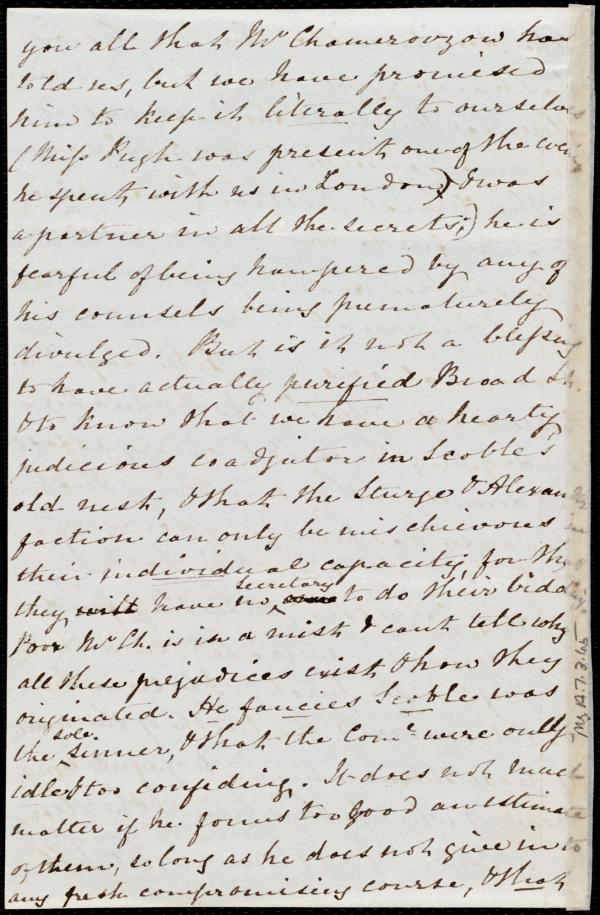 you all that Mr Chamerovzow has
told us, but we have promised
him to keep it literally to ourselves
(Miss Pugh was present one of the eve
he spent with us in London) & was
a partner in all the secrets;) he is
fearful of being hampered by any of
his counsels being prematurely
divulged. But is it not a blessing
to have actually purified Broad St.
& to know that we have a hearty
judicious coadjutor in Scoble's
old nest, & that the Sturge & Alexan
faction can only be mischievous in
their individual capacity, for tho'
they will have no secretary to do their bidd
Poor Mr Ch. is in a mist & can't tell why
all these prejudices exist & how they
originated. He fancies Scoble was
the sole sinner, & that the Comee were only
idle & too confiding. It does not much
matter if he forms too good an estimate
of them, so long as he does not give in to
any fresh compromising course, & that
Ms.A.7.3.65